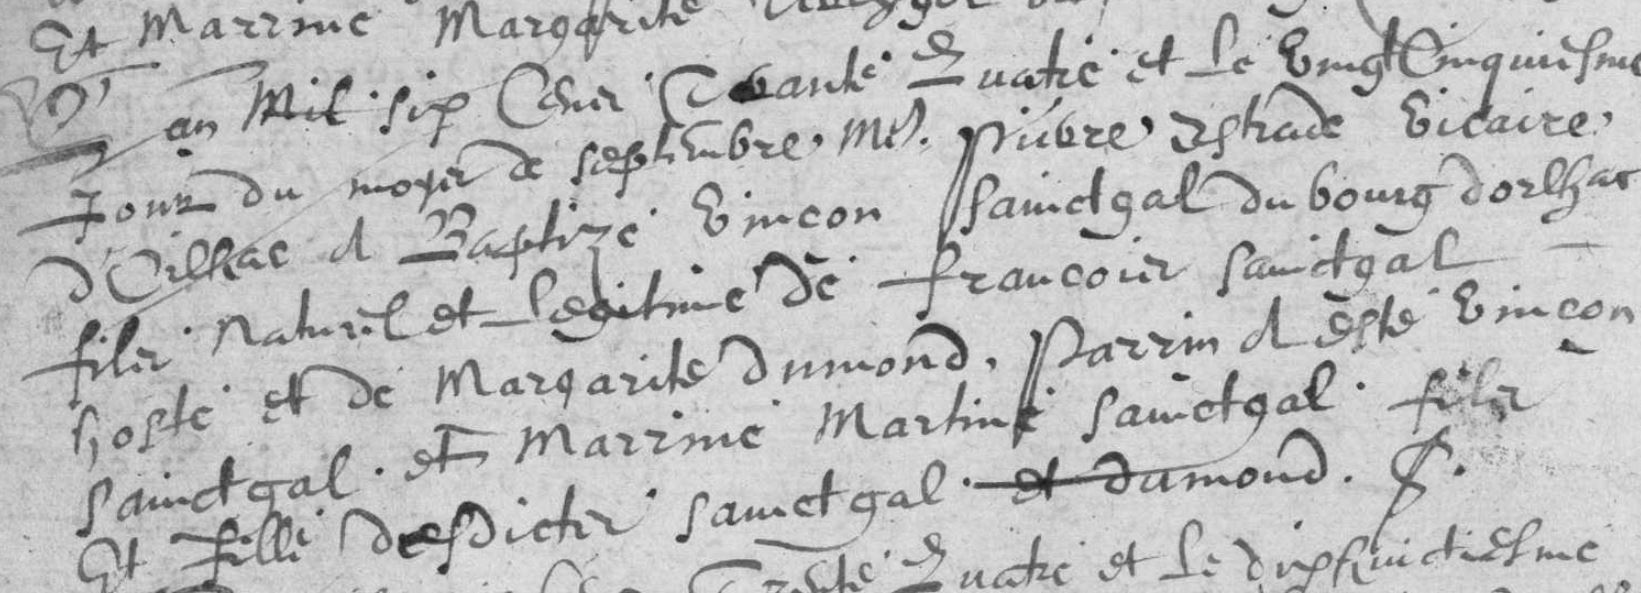 Et Marrine Margarite
L'an Mil six Cens Trante Quatre et Le Vingt Cinquiesme
Jour du moyes de septembre, Mre. Pierre Estrade Vicaire
d'Orlhac a Baptizé Vincon Sainctgal du bourg dorlhac
filz Naturel et Legitime de francois Sainctgal
hoste et de Margarite dumond, Parrin a esté Vincon
Sainctgal. et Marrine Martine Sainctgal. filz
Et fille desdictz Sainctgal et dumond. /.
Trente Quatre et Le dixhuictiesme